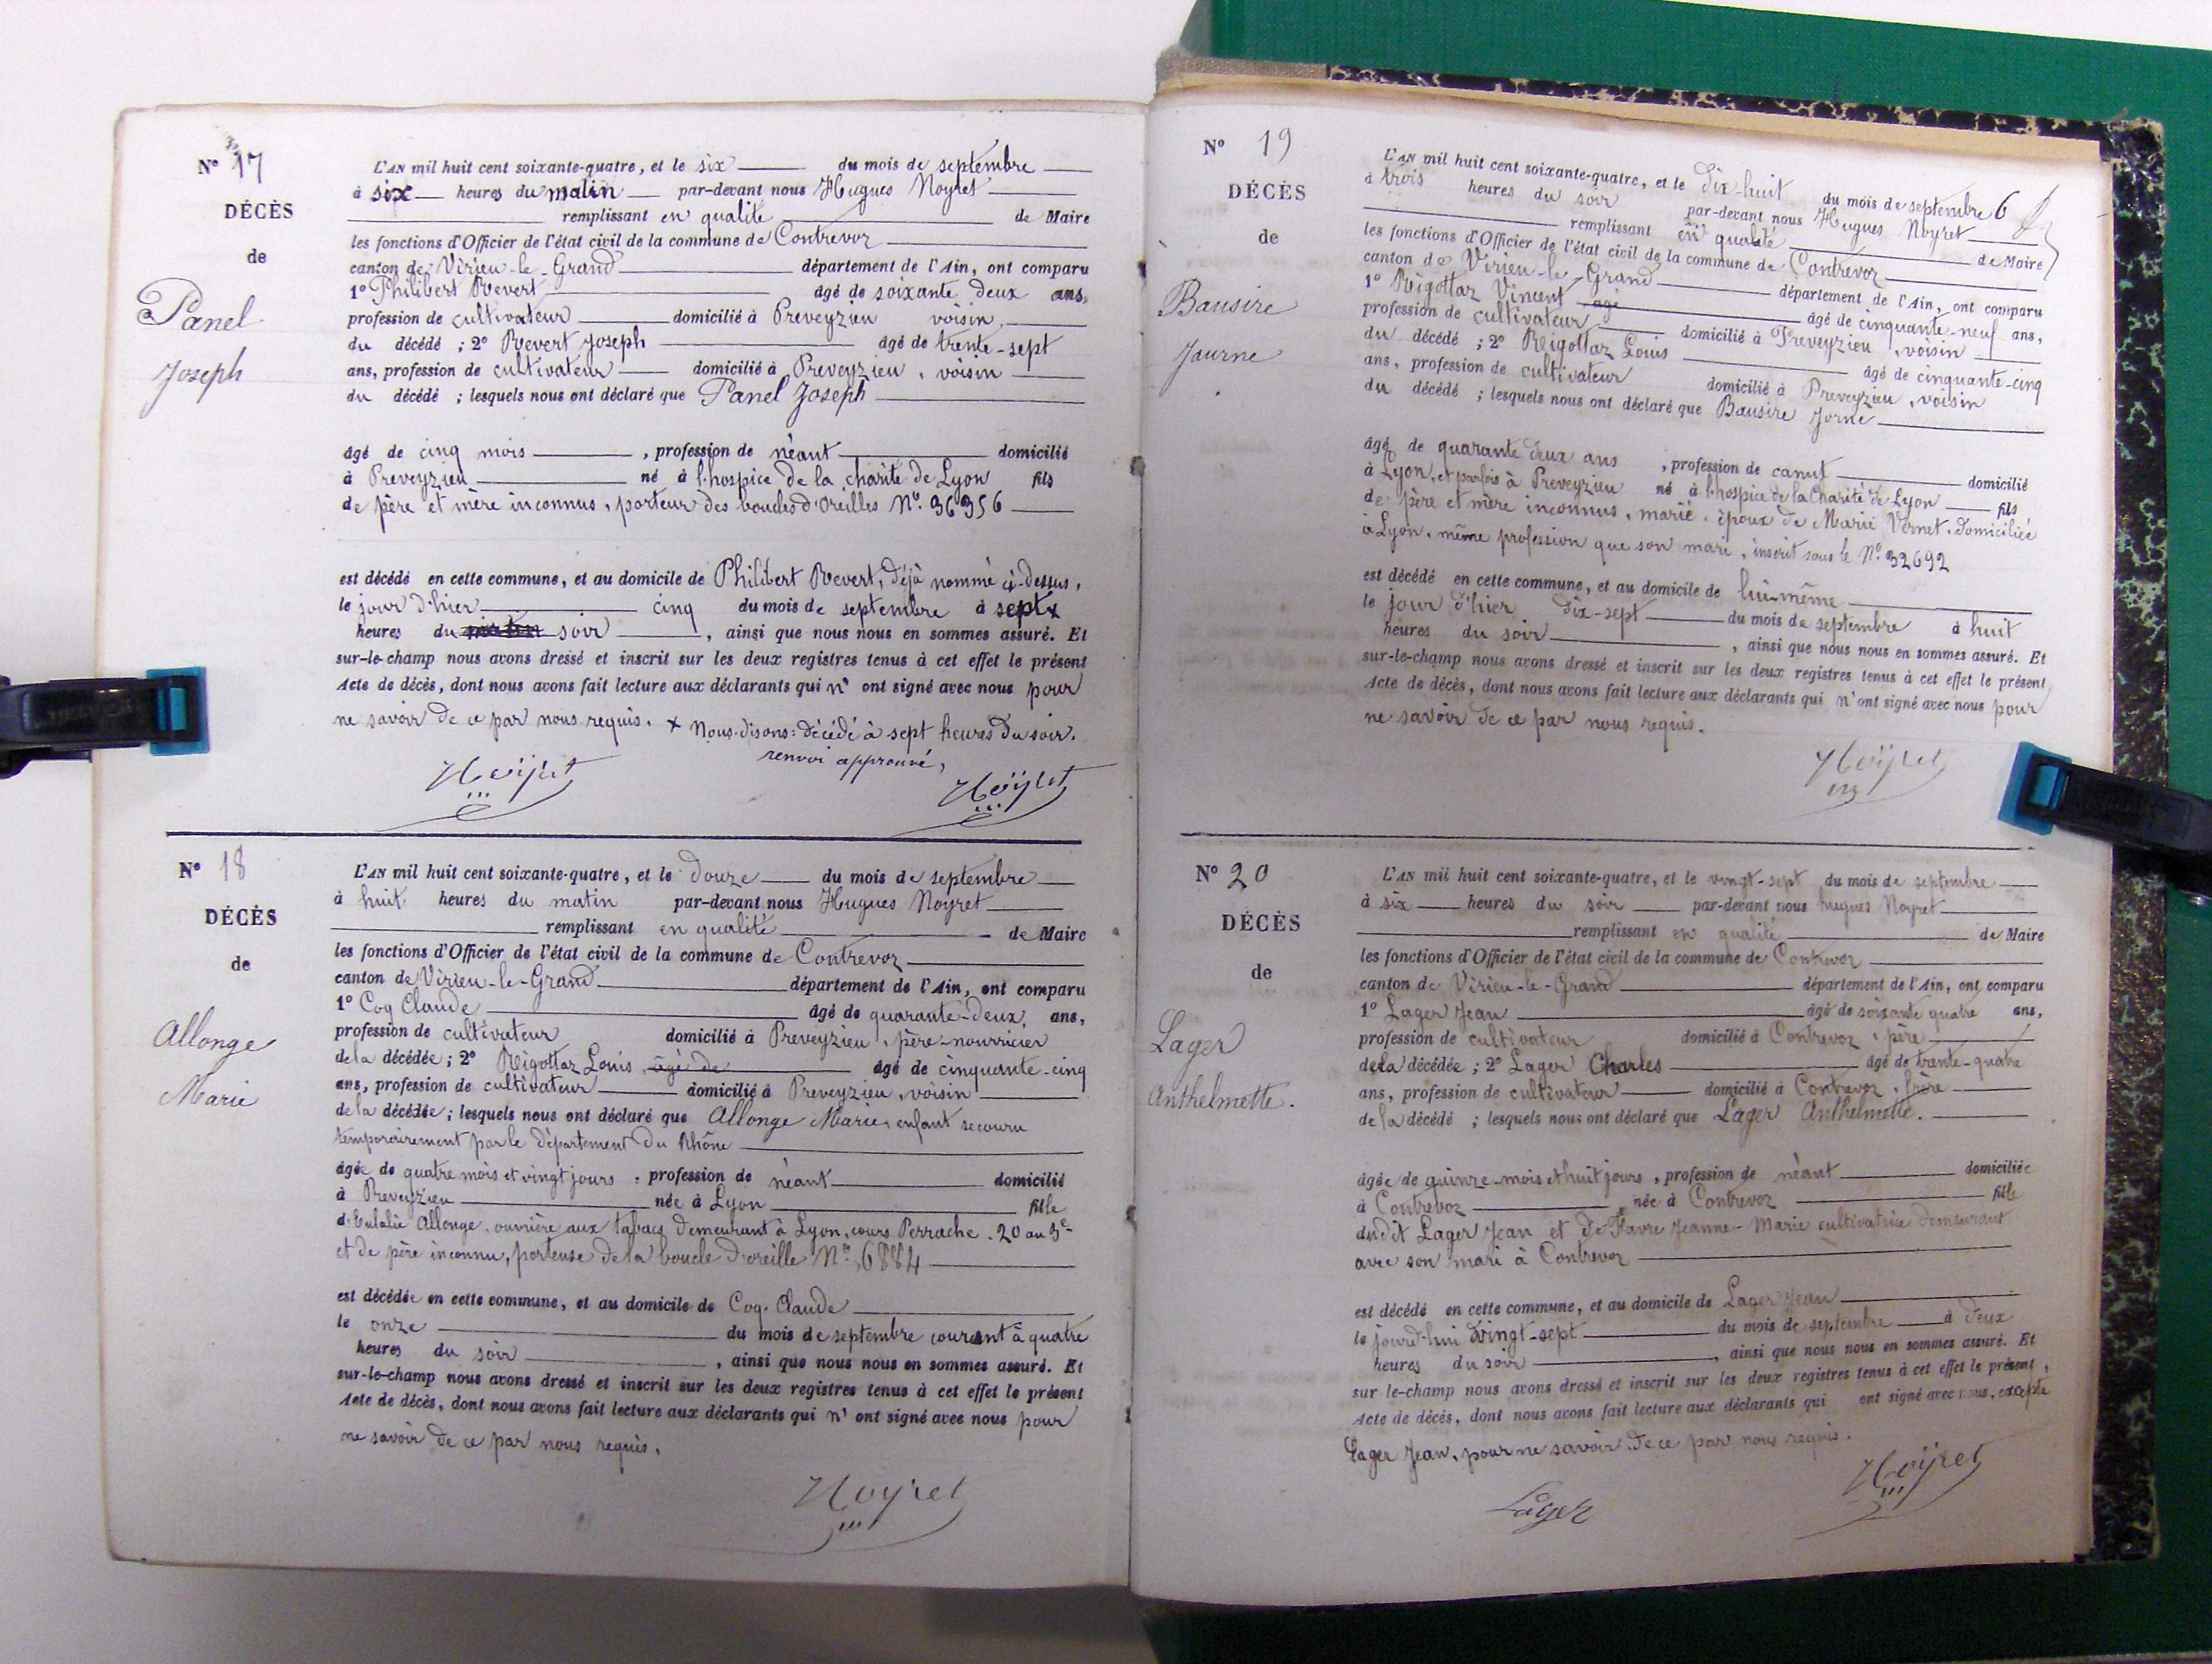 N° 17
DÉCÈS
de
Panel
Joseph
L'AN mil huit cent soixante-quatre, et le six du mois de septembre
à six heures du matin par-devant nous Hugues Noyret
remplissant en qualité de Maire
les fonctions d'Officier de l'état civil de la commune de Contrevoz
canton de Virieu-le-Grand département de l'Ain, ont comparu
1° Philibert Revert âgé de soixante deux ans,
profession de cultivateur domicilié à Preveyzieu voisin
du décédé ; 2° Revert Joseph âgé de trente-sept
ans, profession de cultivateur domicilié à Preveyzieu, voisin
du décédé ; lesquels nous ont déclaré que Panel Joseph
âgé de cinq mois, profession de néant domicilié
à Preveyzieu né à l'hospice de la charité de Lyon fils
de père et mère inconnus, porteur des boucles d'oreilles N° 36356
est décédé en cette commune, et au domicile de Philibert Revert, déjà nommé ci-dessus,
le jour d'hier cinq du mois de septembre à sept x
heures du soir, ainsi que nous nous en sommes assuré. Et
sur-le-champ nous avons dressé et inscrit sur les deux registres tenus à cet effet le présent
Acte de décès, dont nous avons fait lecture aux déclarants qui n' ont signé avec nous pour
ne savoir de ce par nous requis. x Nous disons : décédé à sept heures du soir.
renvoi approuvé,
Noÿret Noÿret
N° 18
DÉCÈS
de
Allonge
Marie
L'AN mil huit cent soixante-quatre, et le douze du mois de septembre
à huit heures du matin par-devant nous Hugues Noyret
remplissant en qualité de Maire
les fonctions d'Officier de l'état civil de la commune de Contrevoz
canton de Virieu-le-Grand département de l'Ain, ont comparu
1° Coq Claude âgé de quarante-deux ans,
profession de cultivateur domicilié à Preveyzieu, père-nourricier
de la décédée ; 2° Rigottaz Louis, âgé de âgé de cinquante-cinq
ans, profession de cultivateur domicilié à Preveyzieu, voisin
de la décédée ; lesquels nous ont déclaré que Allonge Marie, enfant secouru
temporairement par le département du Rhône
âgée de quatre mois et vingt jours, profession de néant domicilié
à Preveyzieu née à Lyon fille
d'Eulalie Allonge, ouvrière aux tabacs demeurant à Lyon, cours Perrache, 20 au 5e
et de père inconnu, porteuse de la boucle d'oreille N° 6884
est décédée en cette commune, et au domicile de Coq Claude
le onze du mois de septembre courant à quatre
heures du soir, ainsi que nous nous en sommes assuré. Et
sur-le-champ nous avons dressé et inscrit sur les deux registres tenus à cet effet le présent
Acte de décès, dont nous avons fait lecture aux déclarants qui n' ont signé avec nous pour
ne savoir de ce par nous requis.
Noyret
N° 19
DÉCÈS
de
Bausire
Jaurne
6
L'AN mil huit cent soixante-quatre, et le dix-huit du mois de septembre
à trois heures du soir par-devant nous Hugues Noyret
remplissant en qualité de Maire
les fonctions d'Officier de l'état civil de la commune de Contrevoz
canton de Virieu-le-Grand département de l'Ain, ont comparu
1° Rigottaz Vincent âgé âgé de cinquante-neuf ans,
profession de cultivateur domicilié à Preveyzieu, voisin
du décédé ; 2° Rigottaz Louis âgé de cinquante-cinq
ans, profession de cultivateur domicilié à Preveyzieu, voisin
du décédé ; lesquels nous ont déclaré que Bausire Jorne
âgé de quarante deux ans, profession de canut domicilié
à Lyon, et parfois à Preveyzieu né à l'hospice de la Charité de Lyon fils
de père et mère inconnus, marié, époux de Marie Vernet, domiciliée
à Lyon, même profession que son mari, inscrit sous le N° 32692
est décédé en cette commune, et au domicile de lui-même
le jour d'hier dix-sept du mois de septembre à huit
heures du soir, ainsi que nous nous en sommes assuré. Et
sur-le-champ nous avons dressé et inscrit sur les deux registres tenus à cet effet le présent
Acte de décès, dont nous avons fait lecture aux déclarants qui n'ont signé avec nous pour
ne savoir de ce par nous requis.
Noÿret
N° 20
DÉCÈS
de
Lager
Anthelmette.
L'AN mil huit cent soixante-quatre, et le vingt-sept du mois de septembre
à six heures du soir par-devant nous hugues Noyret
remplissant en qualité de Maire
les fonctions d'Officier de l'état civil de la commune de Contrevoz
canton de Virieu-le-Grand département de l'Ain, ont comparu
1° Lager Jean âgé de soixante quatre ans,
profession de cultivateur domicilié à Contrevoz, père
de la décédée ; 2° Lager Charles âgé de trente-quatre
ans, profession de cultivateur domicilié à Contrevoz, frère
de la décédé ; lesquels nous ont déclaré que Lager Anthelmette.
âgée de quinze mois et huit jours, profession de néant domiciliée
à Contrevoz née à Contrevoz fille
dudit Lager Jean et de Favre Jeanne-Marie cultivatrice demeurant
avec son mari à Contrevoz
est décédé en cette commune, et au domicile de Lager Jean
le jourd'hui vingt-sept du mois de septembre à deux
heures du soir, ainsi que nous nous en sommes assuré. Et
sur le-champ nous avons dressé et inscrit sur les deux registres tenus à cet effet le présent,
Acte de décès, dont nous avons fait lecture aux déclarants qui ont signé avec nous, excepté
Lager Jean, pour ne savoir de ce par nous requis.
Lager Noÿret